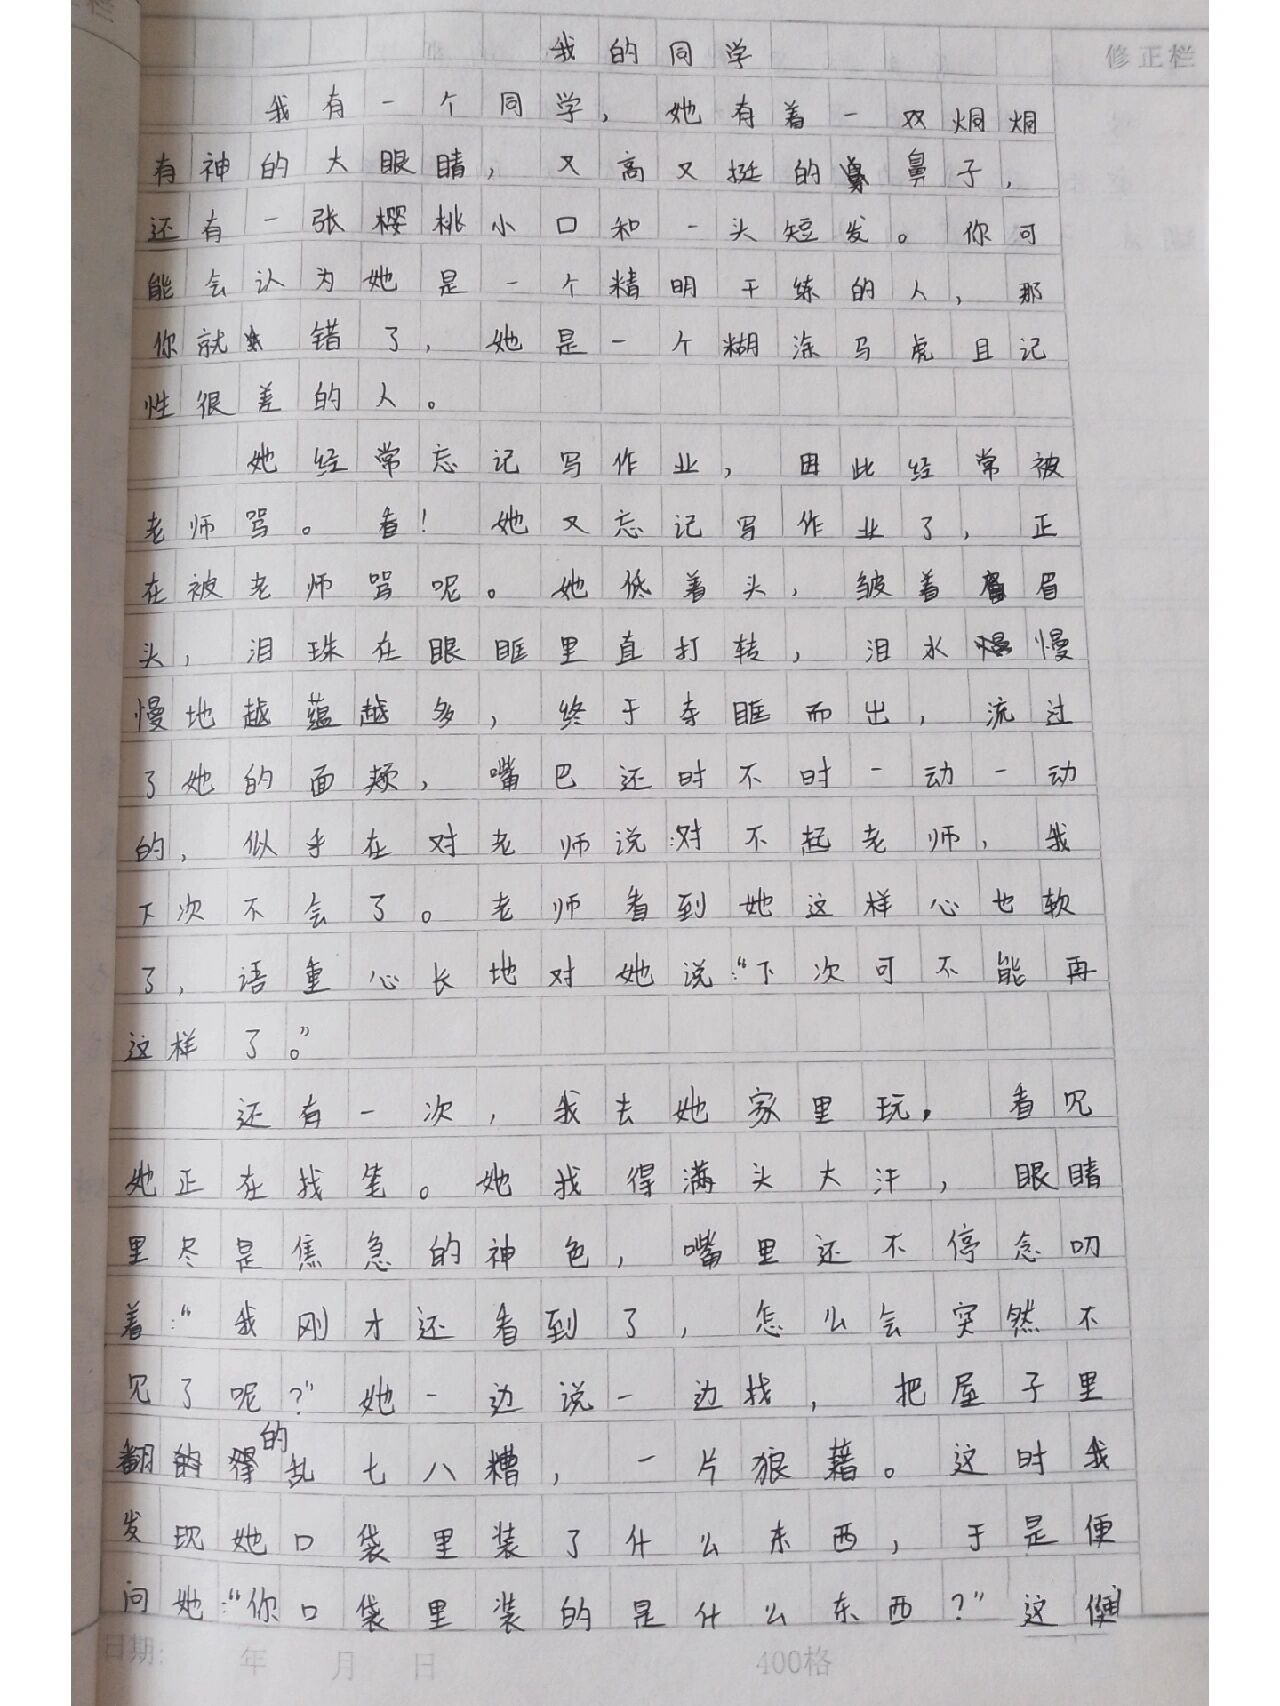 我的同学
修正栏
我有一个同学，她有着一双炯炯
有神的大眼睛，又高又挺的鼻子，
还有一张樱桃小口和一头短发。你可
能会认为她是一个精明干练的人，那
你就错了，她是一个糊涂马虎且记
性很差的人。
她经常忘记写作业，因此经常被
老师骂。看！她又忘记写作业了，正
在被老师骂呢。她低着头，皱着眉
头，泪珠在眼眶里直打转，泪水慢
慢地越蕴越多，终于夺眶而出，流过
了她的面颊，嘴巴还时不时一动一动
的，似乎在对老师说:对不起老师，我
下次不会了。老师看到她这样心也软
了，语重心长地对她说:“下次可不能再
这样了。”
还有一次，我去她家里玩，看见
她正在找笔。她找得满头大汗，眼睛
里尽是焦急的神色，嘴里还不停念叨
着:“我刚才还看到了，怎么会突然不
见了呢?”她一边说一边找，把屋子里
翻的乱七八糟，一片狼藉。这时我
发现她口袋里装了什么东西，于是便
问她:“你口袋里装的是什么东西?”这
日期: 年 月 日 400格